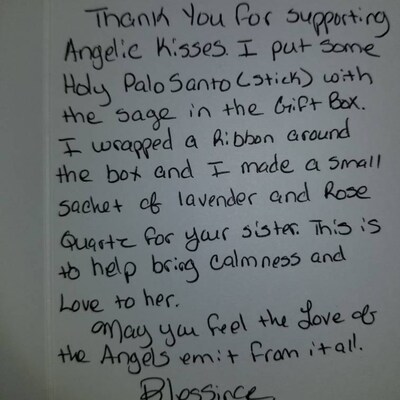 Thank You for supporting
Angelic Kisses. I put some
Holy Palo Santo (stick) with
the sage in the Gift Box.
I wrapped a Ribbon around
the box and I made a small
sachet of lavender and Rose
Quartz for your sister. This is
to help bring Calmness and
Love to her.
May you feel the Love of
the Angels emit from it all.